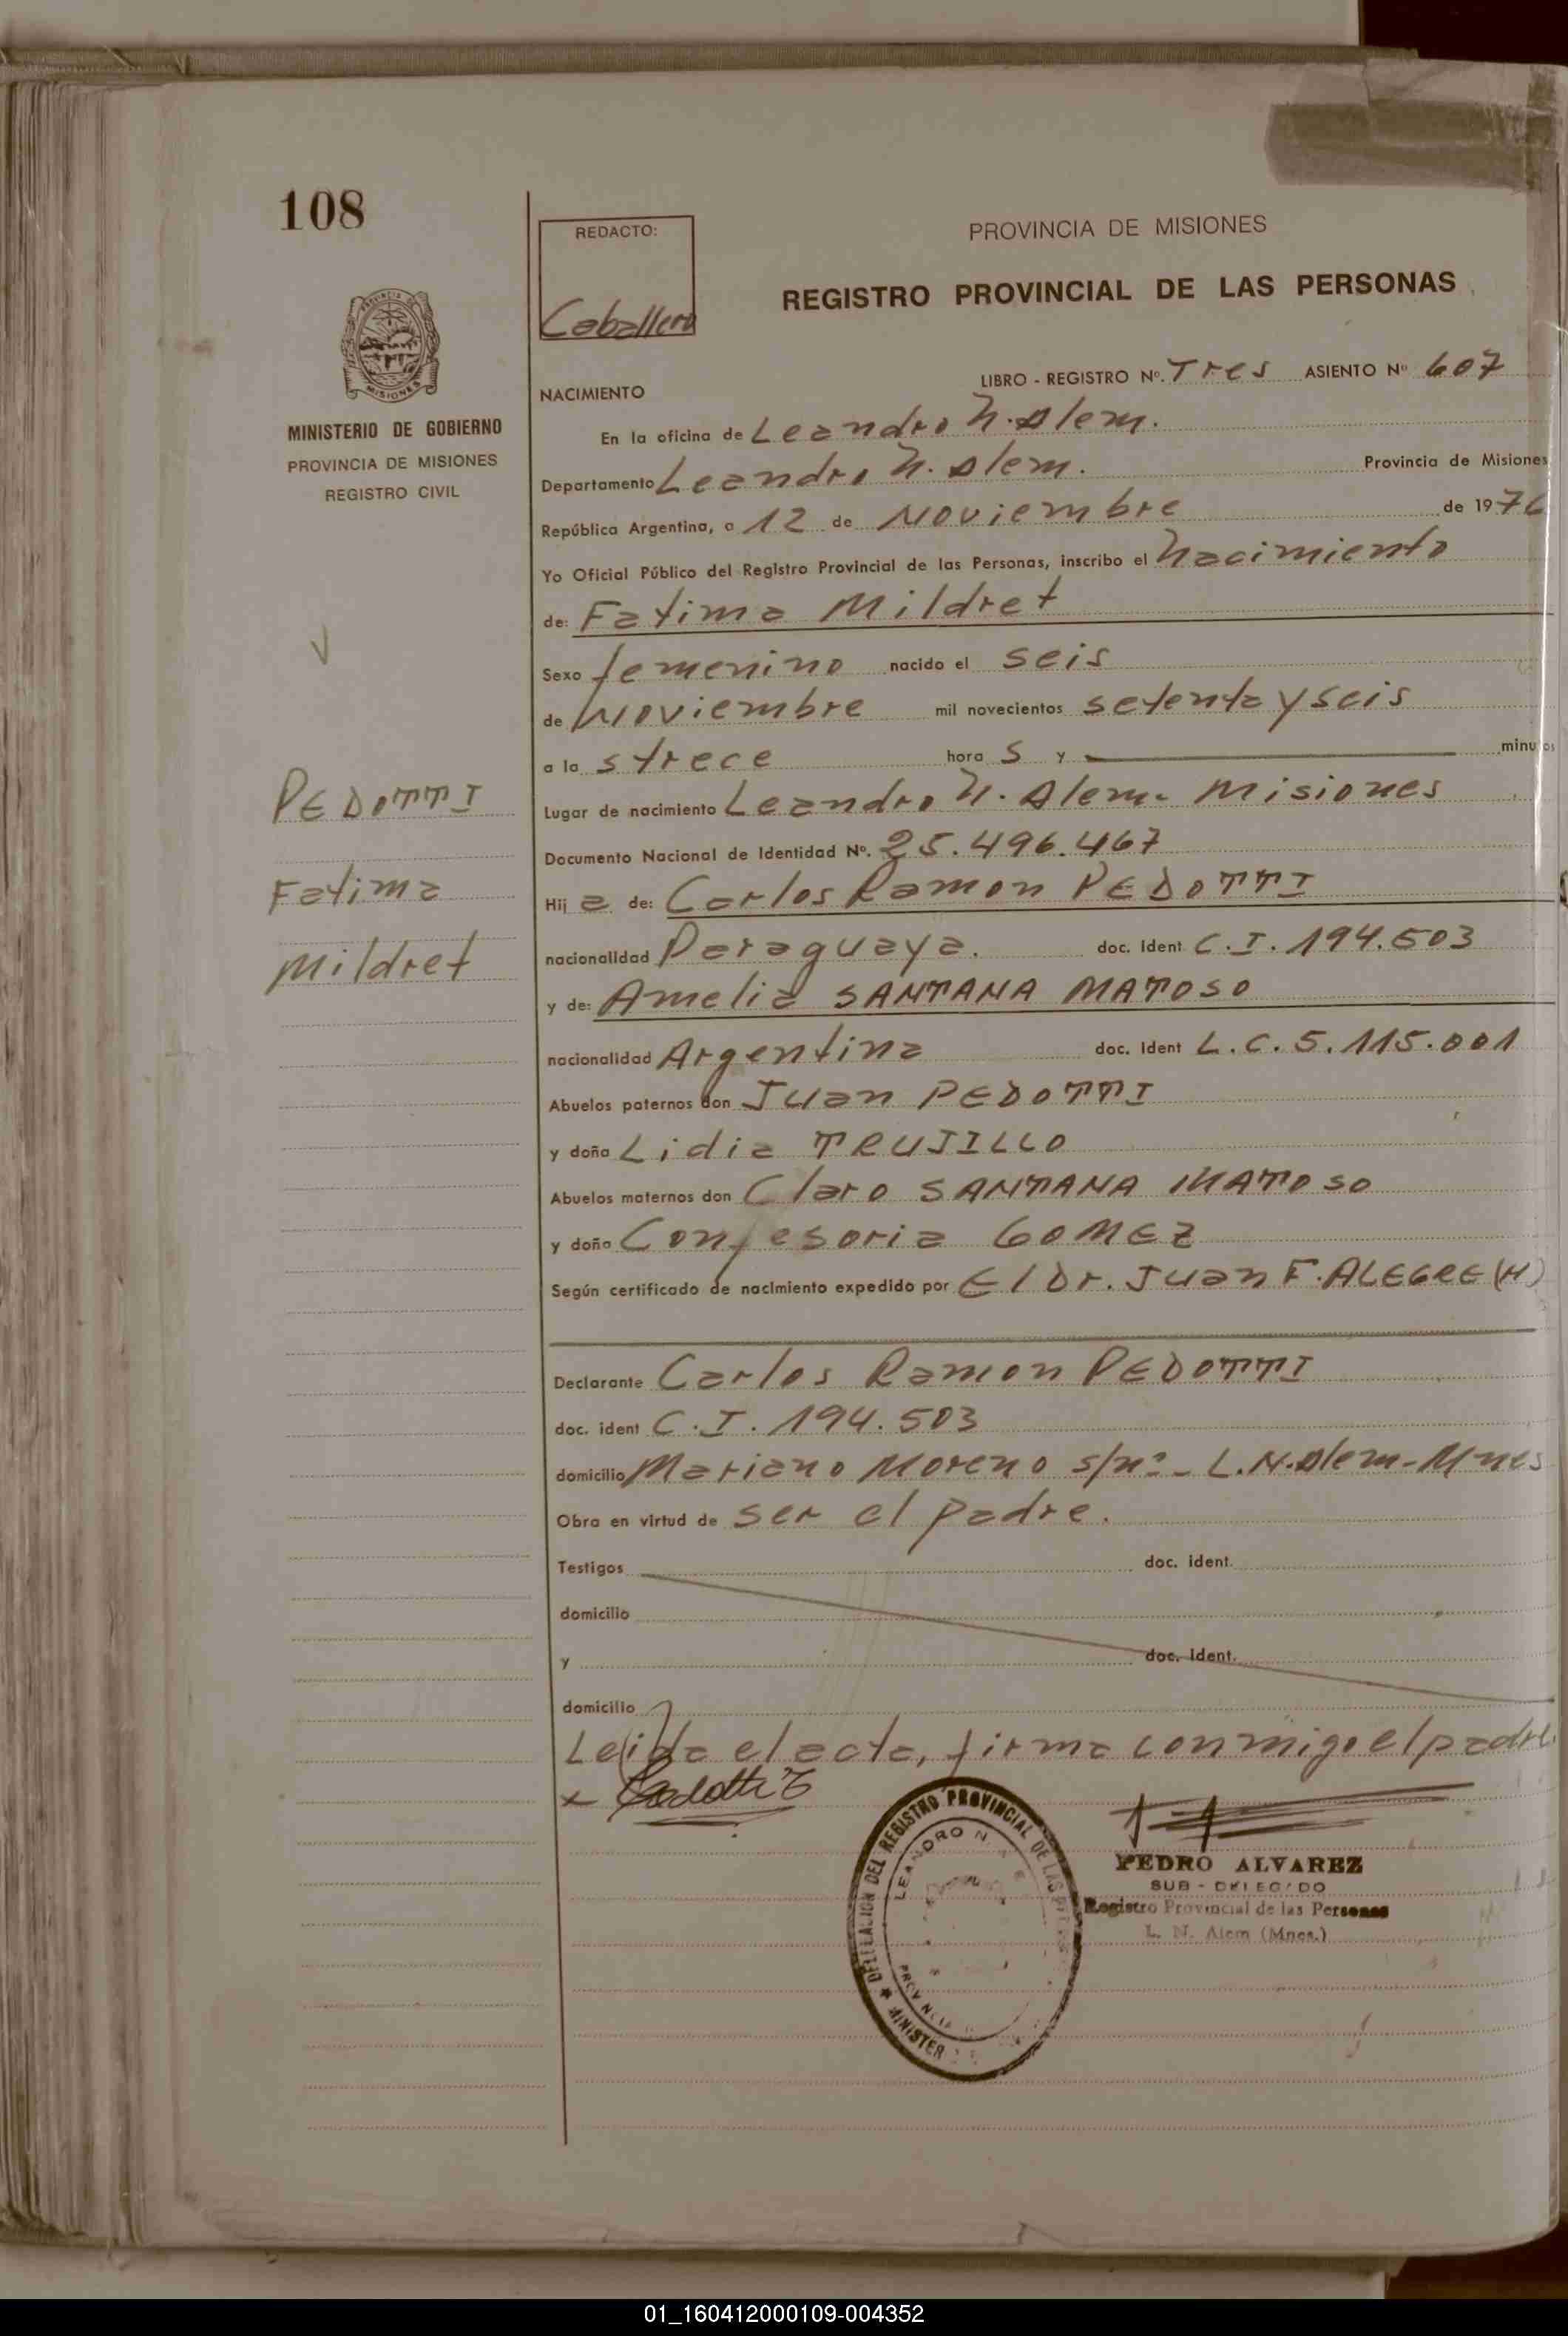 108
REDACTO:
Caballero
PROVINCIA DE MISIONES
REGISTRO PROVINCIAL DE LAS PERSONAS
PROVINCIA DE
MISIONES
MINISTERIO DE GOBIERNO
PROVINCIA DE MISIONES
REGISTRO CIVIL
LIBRO - REGISTRO Nº. Tres ASIENTO Nº 607
NACIMIENTO
En la oficina de Leandro N. Alem.
Departamento Leandro N. Alem. Provincia de Misiones
República Argentina, a 12 de Noviembre de 1976
Yo Oficial Público del Registro Provincial de las Personas, inscribo el nacimiento
de: Fatima Mildret
Sexo femenino nacido el seis
de Noviembre mil novecientos setenta y seis
a la s trece hora s y minutos
Lugar de nacimiento Leandro N. Alem - Misiones
Documento Nacional de Identidad Nº. 25.496.467
Hij a de: Carlos Ramon PEDOTTI
nacionalidad Paraguaya. doc. Ident C.I. 194.503
y de: Amelia SANTANA MATOSO
nacionalidad Argentina doc. Ident L.C. 5.115.001
Abuelos paternos don Juan PEDOTTI
y doña Lidia TRUJILLO
Abuelos maternos don Claro SANTANA MATOSO
y doña Confesoria GOMEZ
Según certificado de nacimiento expedido por El Dr. Juan F. ALEGRE (H)
PEDOTTI
Fatima
Mildret
Declarante Carlos Ramon PEDOTTI
doc. ident C.I. 194.503
domicilio Mariano Moreno s/nº - L.N. Alem - Mnes
Obra en virtud de ser el padre.
Testigos doc. ident.
domicilio
y doc. ident.
domicilio
Leida el acta, firma conmigo el padre.
x
DELEGACION DEL REGISTRO PROVINCIAL DE LAS
LEANDRO N.
PROVINCIA
MINISTER
PEDRO ALVAREZ
SUB - DELEGADO
Registro Provincial de las Personas
L. N. Alem (Mnes.)
01_160412000109-004352